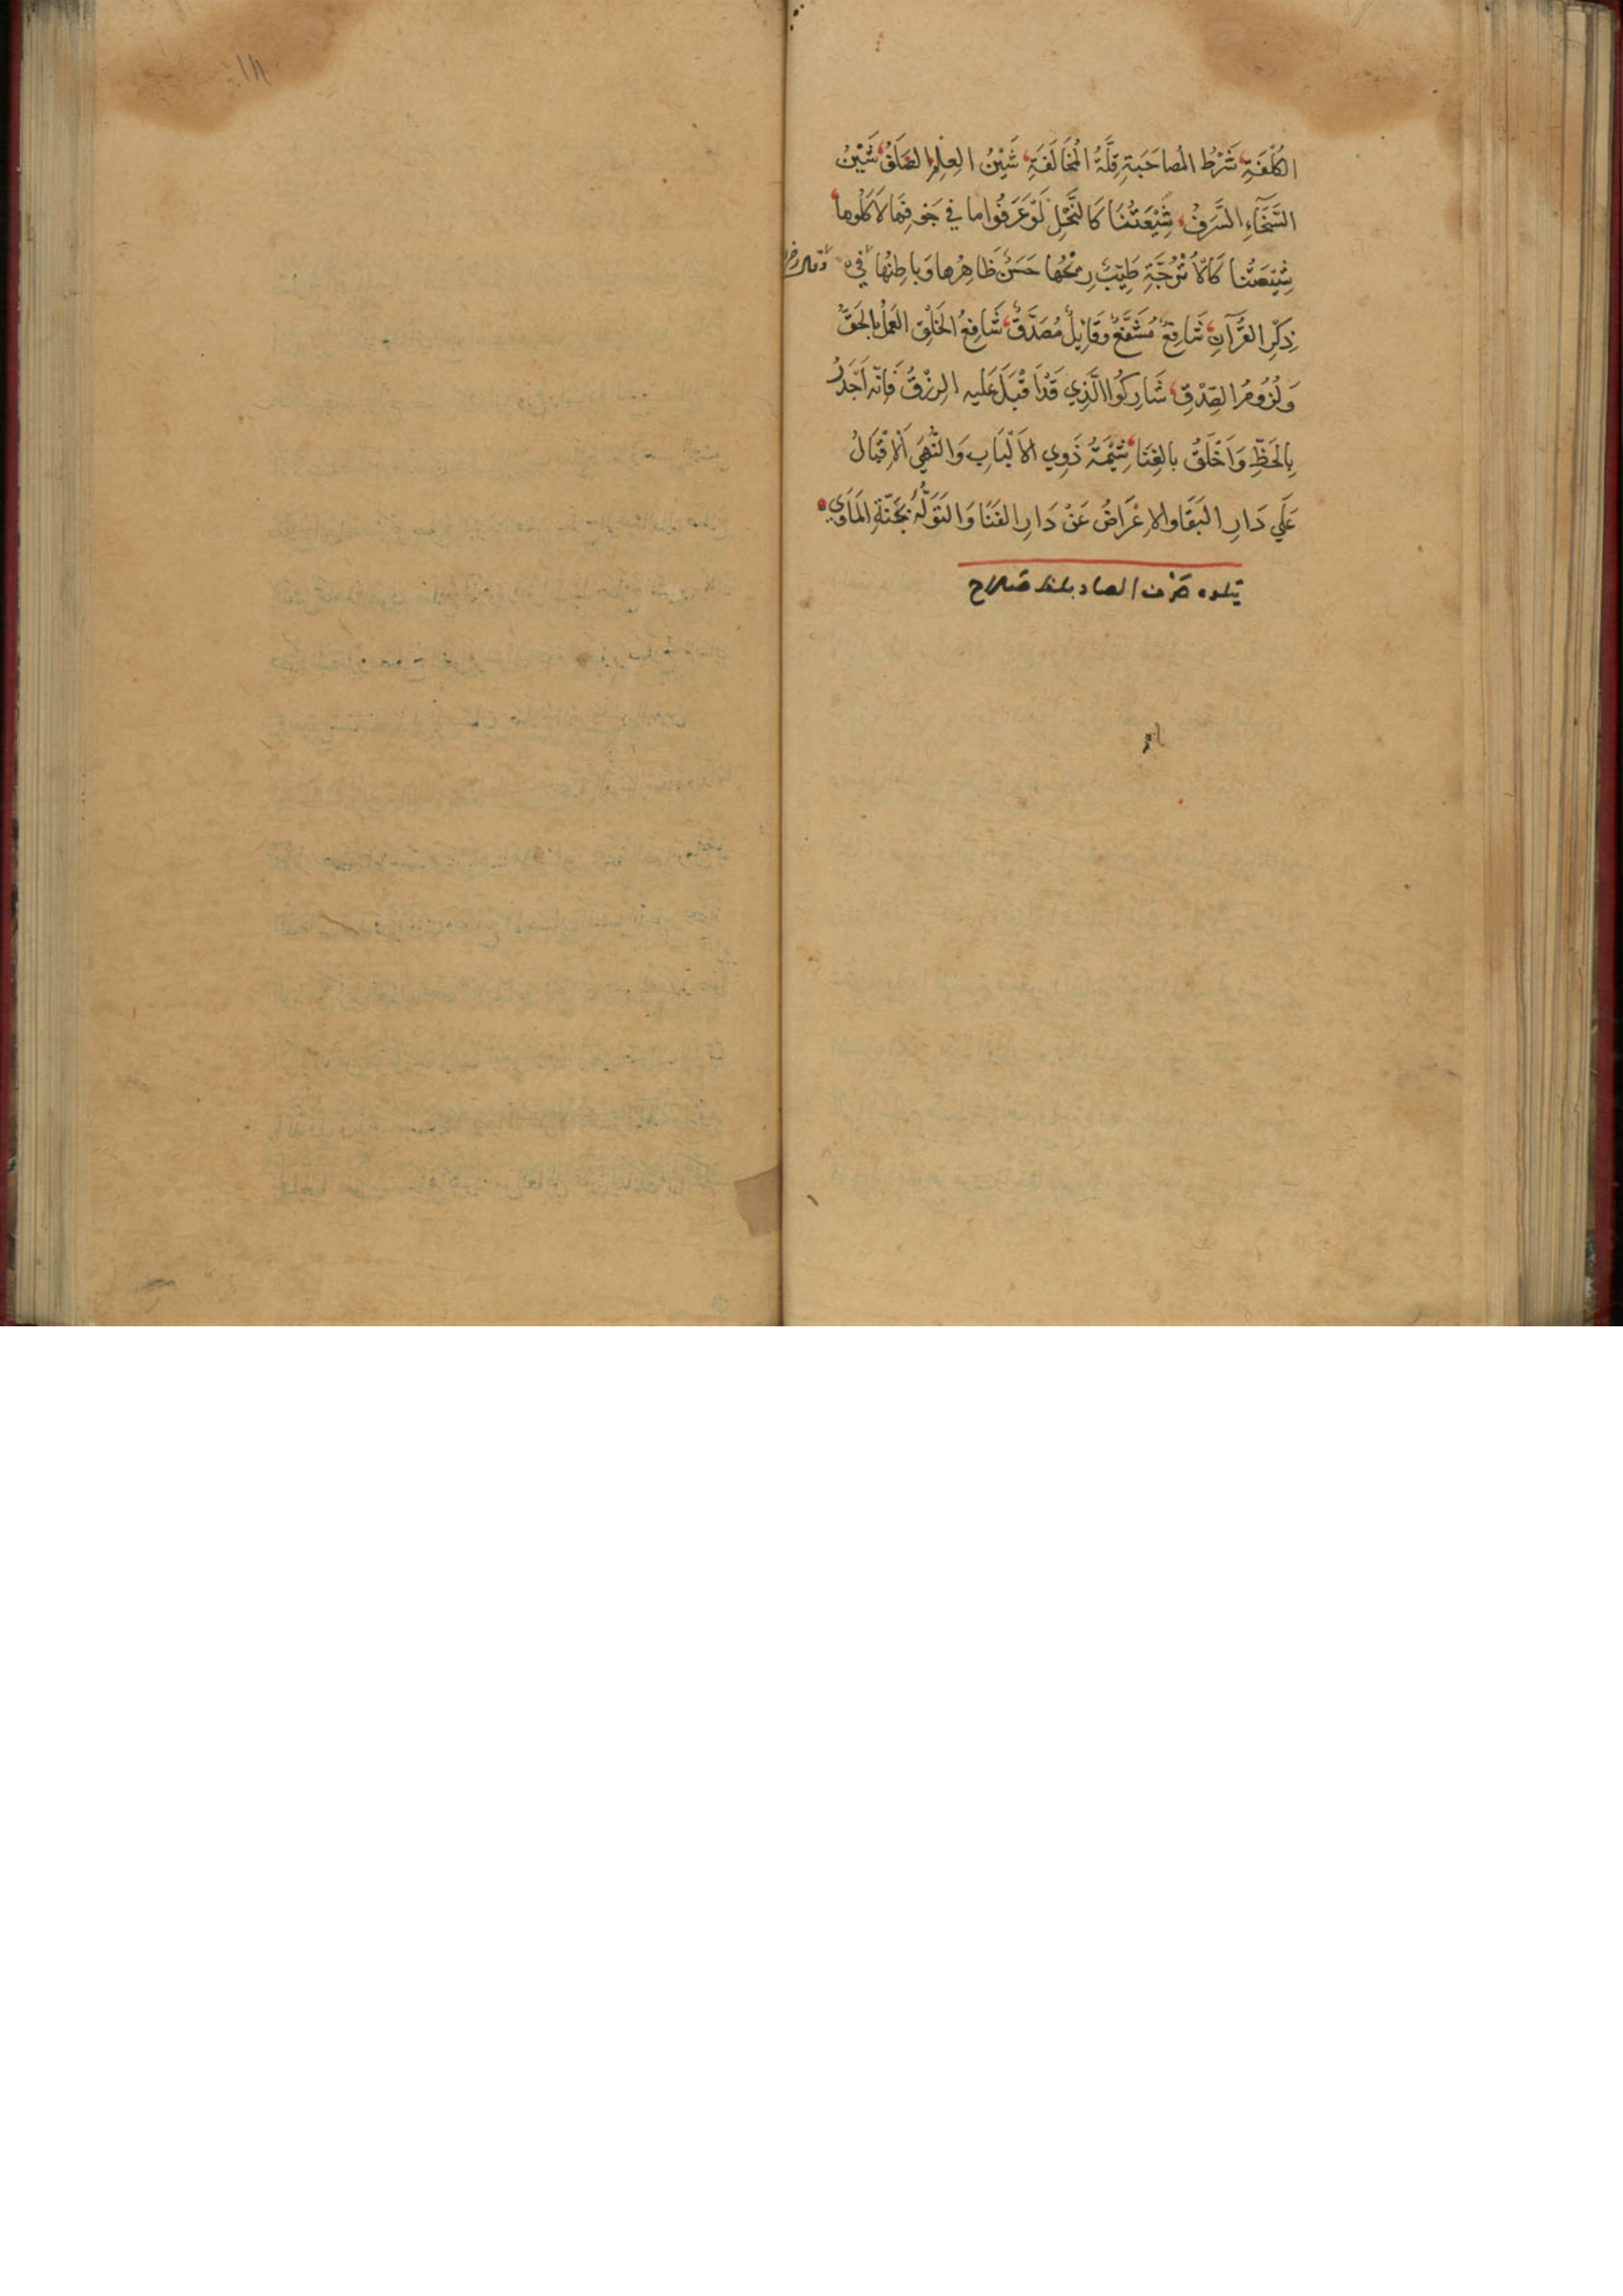 الكُلْفَةِ شَرْطُ المُصاحَبَةِ قِلَّةُ المُخَالَفَةِ شَيْنُ العِلْمِ الصَلَفُ شَيْنُ
السَّخَآءِ السَّرَفُ شِيْعَتُنَا كَالنَّحْلِ لَوْ عَرَفُوا ما في جَوفِهَا لَاَكَلُوها
شِيْعَتُنا كَالْاُتْرُجَّةِ طَيِّبٌ رِيْحُها حَسَنٌ ظَاهِرُها وَباطِنُها وقال في
ذِكْرِ القُرْآنِ شَافِعٌ مُشَفَّعٌ وَقَائِلٌ مُصَدَّقٌ شَافِعُ الخَلْقِ العَمَلُ بِالحَقِّ
وَلُزُومُ الصِّدْقِ شَارِكُوا الَّذِي قَدْ اَقْبَلَ عَلَيه الرِزْقُ فَاِنّه اَجْدَرُ
بِالحَظِّ وَاَخْلَقُ بالغِنَا شِيْمَةُ ذَوِي الاَلْبَابِ وَالنُّهَى اَلْاِقْبَالُ
عَلَي دَارِ البَقَا وَالاِعْرَاضُ عَنْ دَارِ الفَنَا وَالتَوَلُّهُ بِجَنّةِ المَأوَي
يتلوه حرف الصاد بلفظ صلاح